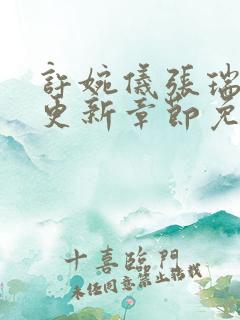 許婉儀張瑞
更新章節免
十喜臨門
未經同意禁止轉載